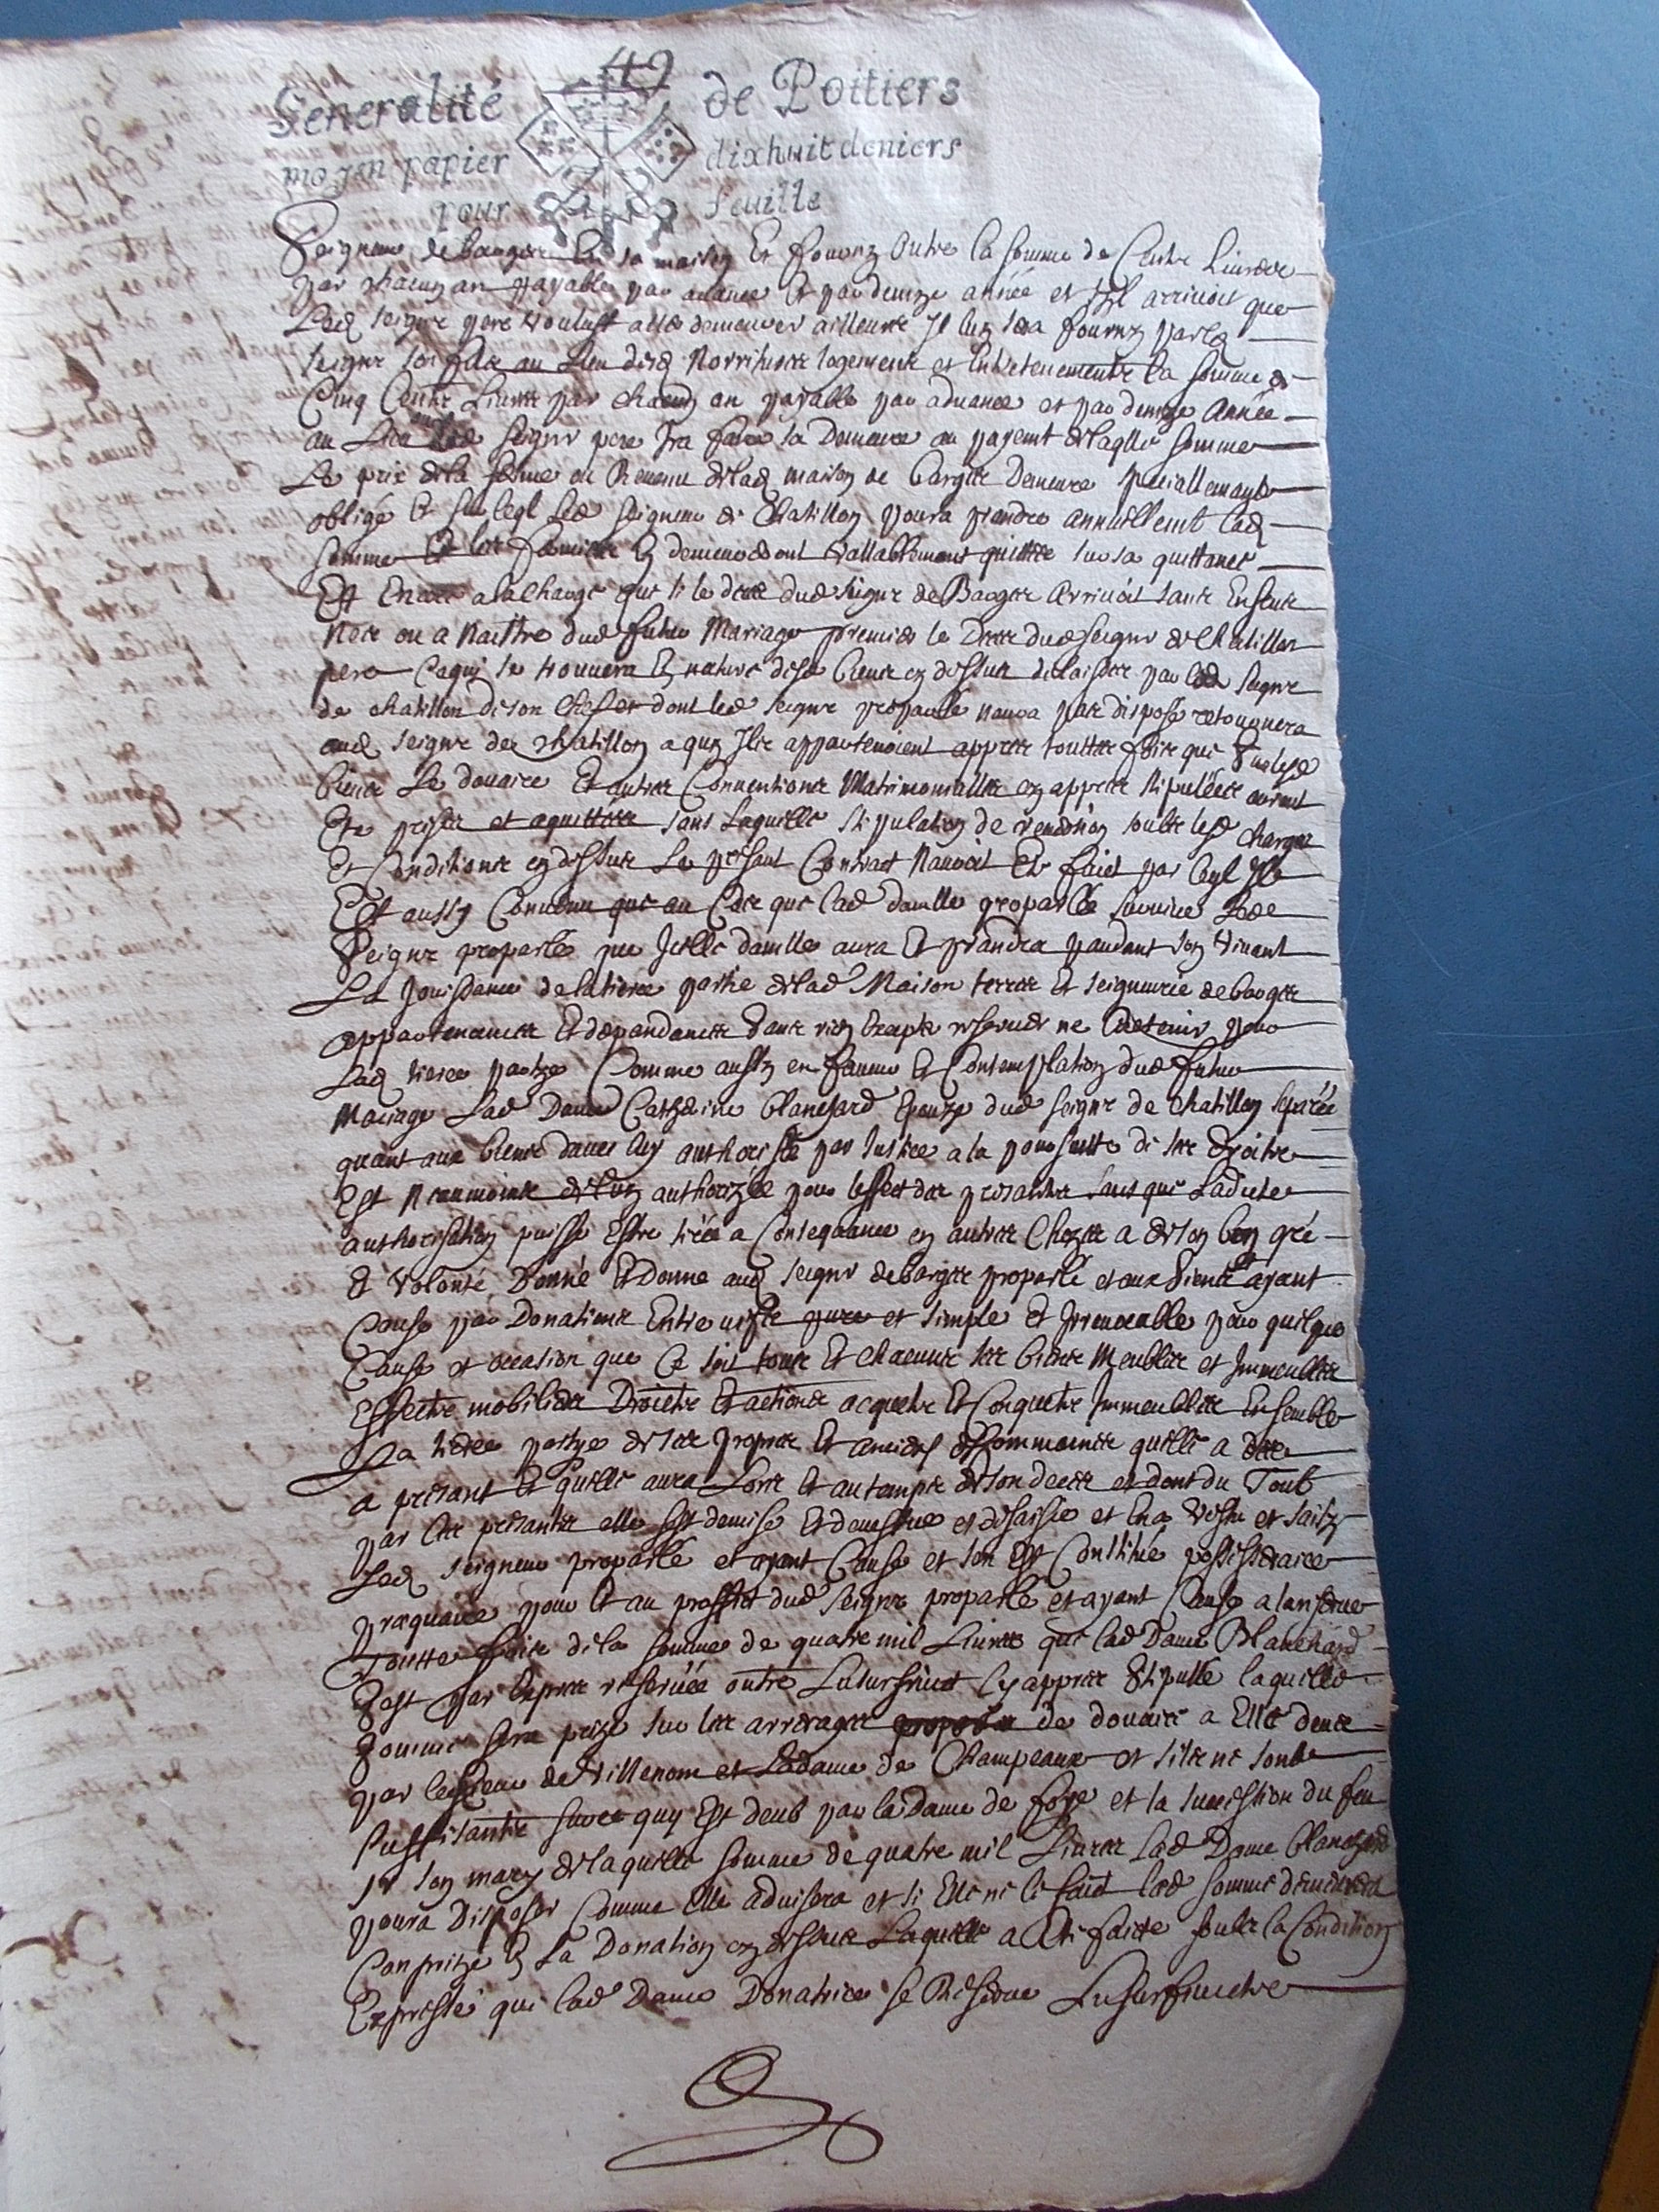 49
Generalité de Poitiers
moyen papier dixhuit deniers
pour feuille
Seigneur de bauger En sa maison Et fournir Outre la somme de Cent Livres
par chacun an payable par avance Et par demye année et s'il arrivoit que
Led seignr pere voulust aller demeurer ailleurs Il luy sera fourny par led
seignr son fils au Lieu desd Norritures logement et Entretenements la somme de
Cinq Cents Livres par chacun an payable par advance et par demye Année
au Lieu led seignr pere Ira faire sa Demeure au payemt de laqlle somme
Le prix de la ferme ou Revenu de lad maison de barges Demeure speciallement
obligé Et sur leql Led Seigneur de Chatillon poura prendre annuellemt lad
somme Et les fermiers En demeureront vallablement quittes sur sa quittance
Est Encore a la charge que si le deces dud seignr de Bauger Arrivoit sans Enfens
Nes ou a Naistre dud futur Mariage premier le Deces dud seignr de Chatillon
pere Ce quy se trouvera En nature desd biens cy dessus delaissez par led seignr
de chatillon de son chef et dont led seignr proparlé naura pas disposé retournera
aud seignr de chatillon a quy Ils appartenoient appres touttes fois que sur lesd
biens Le douaire Et autres Conventions Matrimonialles cy appres stipulées auront
Esté prises et aquittées sans Laquelle stipulation de reversion soubs lesd charges
Et Conditions cy dessus Le present Contract Navoit Esté faict par
Est aussy Convenu que au Cas que lad damlle proparlée survive Led
Seignr proparlé que Icelle damlle aura Et prandra pandant son vivant
La Jouissance de la tierce partie de lad Maison terres Et seigneurie de bauger
appartenances Et dependances sans rien Excepter reserver ne Retenir pour
Lad tierce partye Comme aussy en faveur Et Contemplation dud futur
Mariage Lad Dame Catherine blanchard Epouze dud seignr de chatillon separée
quant aux biens davec luy authorisée par Justice a la poursuitte de ses droits
Est Neanmoins de luy authorizée pour leffect des presantes sans que Ladite
authorisation puisse Estre tirée a Consequance en autres Chozes a de son bon gré
Et volonté Donné Et Donne aud seignr de barges proparlé et aux siens et ayant
Cause par Donations Entre vifs pure et simple Et Irrevocable pour quelque
Cause et occasion que Ce soit tous Et chacuns ses biens Meubles et Immeubles
Effects mobiliers Droicts Et actions acquets Et Conquets Immeubles Ensemble
La tierce partye de ses propres Et anciens quelle a
a presant Et quelle aura Lors Et au temps de son deces et dont du Tout
par Ces presantes elle sest demise Et devestue et desaisie et En a vestu et saisy
Led seigneur proparlé et ayant Cause et sen Est Constituée possesseraice
precquaire pour Et au proffict dud seignr proparlé et ayant Cause a la reserve
Touttes fois de la somme de quatre mil Livres que lad Dame Blanchard
sest par Expres reservée outre Lusurfruict Cy appres stipullé laquelle
somme sera prize sur les arrerages de douaire a Elle deue
par le sieur de Villenom et Ladame de Champeaux et sils ne sont
suffisants sur ce quy Est deub par la Dame de foye et la succession du feu
sr son mary de laquelle somme de quatre mil Livres Lad Dame blanchard
poura Disposer Comme Elle advisera et si Elle ne le faict lad somme demeurera
Comprize En La Donation cy dessus Laquelle a Esté faicte soubs la Condition
Expresse que lad Dame Donatrice se Reserve Lusurfruict